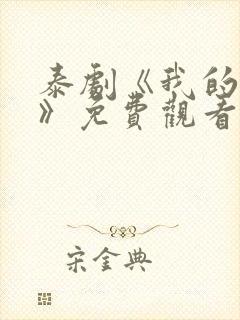 泰劇《我的
》免費觀看
宋金典